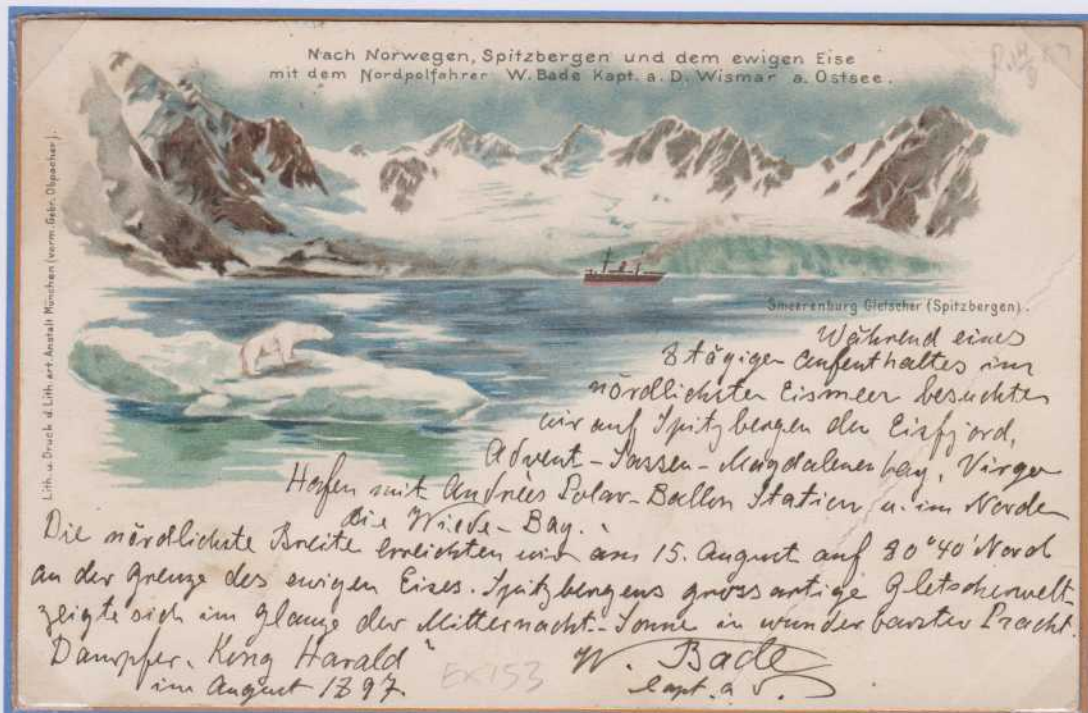 Nach Norwegen, Spitzbergen und dem ewigen Eise
mit dem Nordpolfahrer W. Bade Kapt. a. D. Wismar a. Ostsee.
Lith. u. Druck d. Lith. art. Anstalt München (vorm. Gebr. Obpacher).
Smeerenburg Gletscher (Spitzbergen).
Während eines
8 tägigen Aufenthaltes im
nördlichsten Eismeer besuchten
wir auf Spitzbergen den Eisfjord,
Advent-Sassen-Magdalenenbay, Virgo
Hafen mit Andrées Polar-Ballon Station u. im Norden
die Wiede-Bay.
Die nördlichste Breite erreichten wir am 15. August auf 80°40' Nord
an der Grenze des ewigen Eises. Spitzbergens grossartige Gletscherwelt
zeigte sich im Glanze der Mitternacht-Sonne in wunderbarster Pracht.
Dampfer "Kong Harald"
im August 1897.
W. Bade
Capt. a. D.
EX153